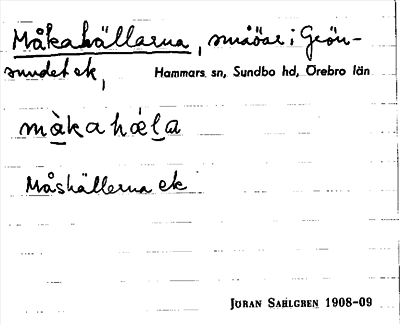 Måkahällarna, småöar i Grön-
sundet ek,
Hammars sn, Sundbo hd, Örebro län
màkahǽla
Måshällerna ek
JÖRAN SAHLGREN 1908-09